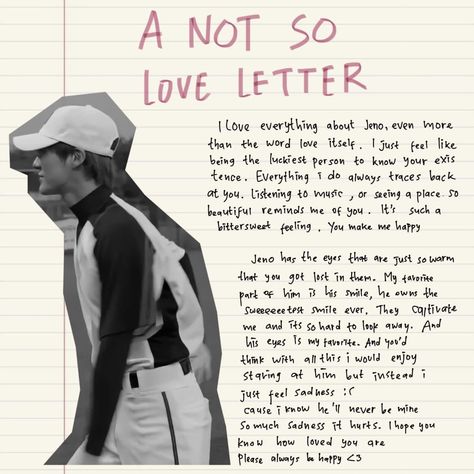 A NOT SO
LOVE LETTER
I love everything about Jeno, even more
than the word love itself. I just feel like
being the luckiest person to know your exis
tence. Everything i do always traces back
at you. Listening to music, or seeing a place so
beautiful reminds me of you. It's such a
bittersweet feeling. You make me happy
Jeno has the eyes that are just so warm
that you got lost in them. My favorite
part of him is his smile, he owns the
sueeeeeetest smile ever. They captivate
me and its so hard to look away. And
his eyes is my favorite. And you'd
think with all this i would enjoy
staring at him but instead i
just feel sadness :(
cause i know he'll never be mine
So much sadness it hurts. I hope you
know how loved you are
Please always be happy <3